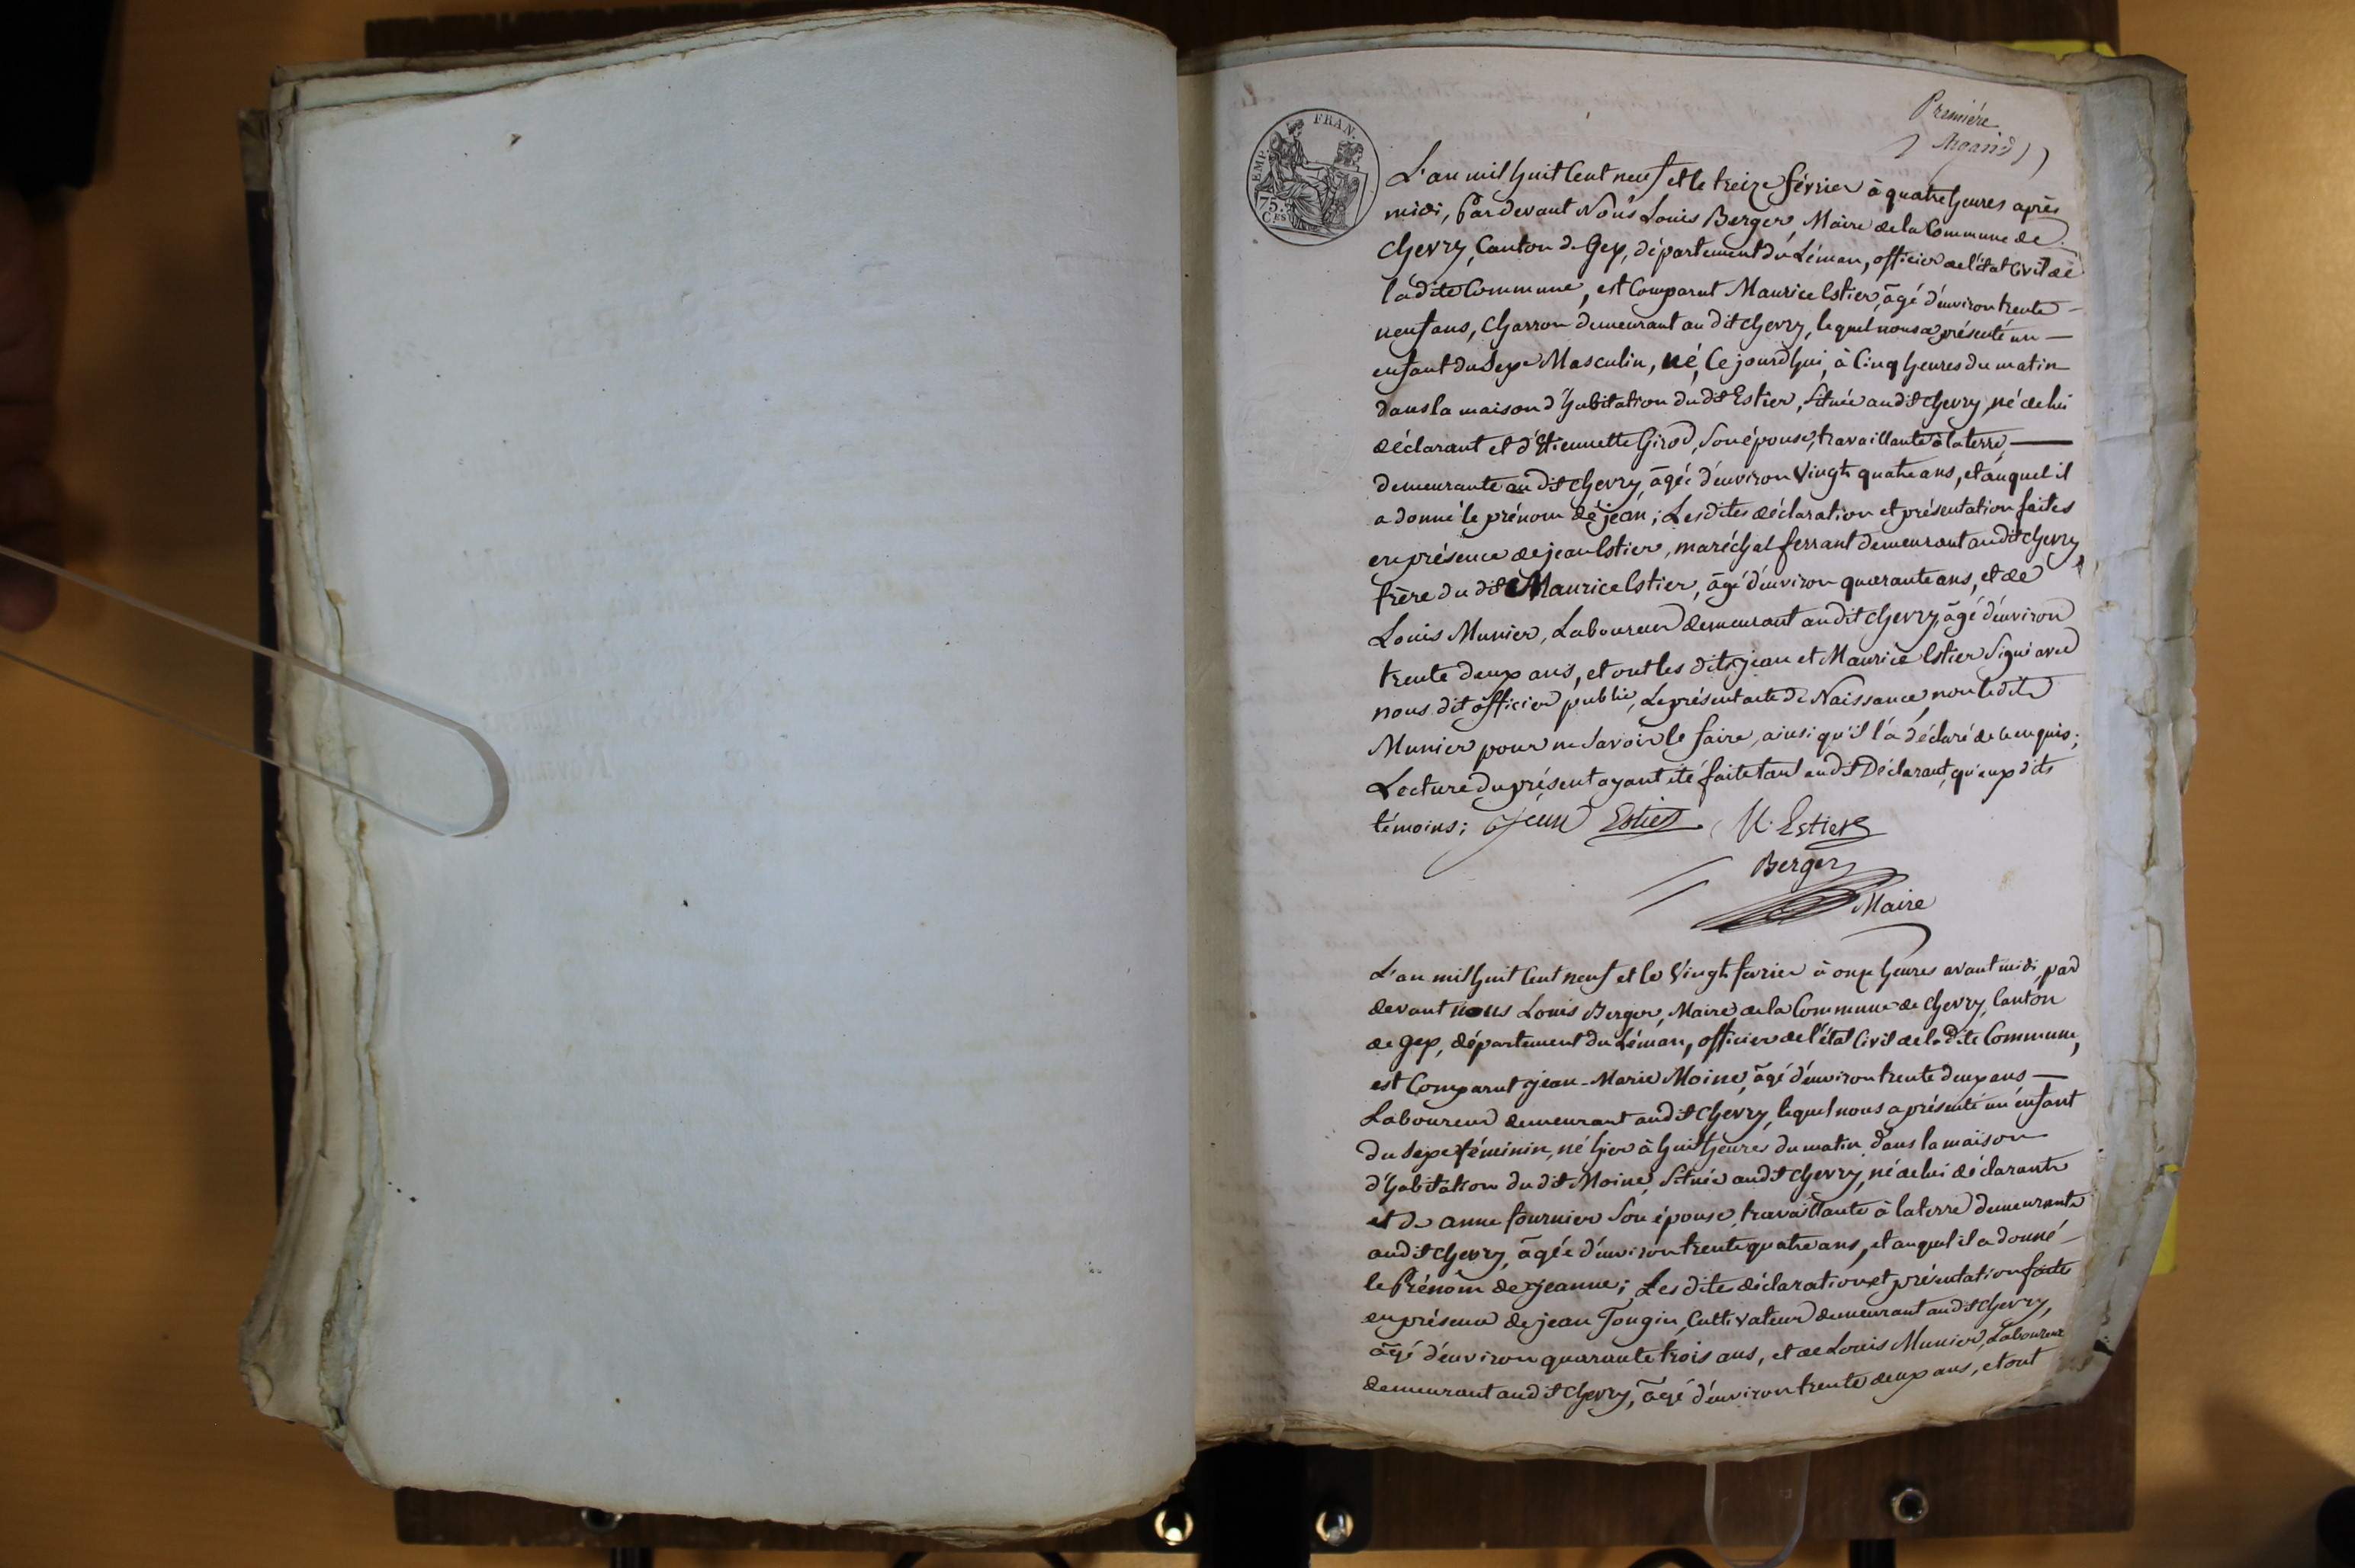 Première
Argand
EMP. FRAN.
75.
Ces
L'an mil huit Cent neuf et le treize février à quatre heures après
midi, Par devant Nous Louis Berger, Maire de la Commune de
Chevry, Canton de Gex, département du Léman, officier de l'état Civil de
la dite Commune, est Comparut Maurice Estier, âgé d'environ trente
neuf ans, Charron demeurant au dit Chevry, lequel nous a présenté un
enfant du Sexe Masculin, né, Ce jourd'hui, à Cinq heures du matin
dans la maison d'habitation du dit Estier, Située au dit Chevry, né de lui
déclarant et d'Etiennette Girod, Son épouse, travaillante à la terre,
demeurante au dit Chevry, âgée d'environ Vingt quatre ans, et auquel il
a donné le prénom de jean ; Les dites déclaration et présentation faites
en présence de jean Estier, maréchal ferrant demeurant au dit Chevry,
frère du dit Maurice Estier, âgé d'environ quarante ans, et de
Louis Munier, Laboureur demeurant au dit Chevry, âgé d'environ
trente deux ans, et ont les dits jean et Maurice Estier Signé avec
nous dit officier public, Le présent acte de Naissance, non le dit
Munier pour ne Savoir le faire, ainsi qu'il l'a déclaré de ce enquis ;
Lecture du présent ayant été faite tant au dit Déclarant, qu'aux dits
témoins ; Jean Estier M. Estier
Berger
Maire
L'an mil huit Cent neuf et le Vingt fevrier à onze heures avant midi, par
devant nous Louis Berger, Maire de la Commune de Chevry, Canton
de Gex, département du Léman, officier de l'état Civil de la dite Commune,
est Comparut jean-Marie Moine, âgé d'environ trente deux ans
Laboureur demeurant au dit Chevry, lequel nous a présenté un enfant
du Sexe féminin, né hier à huit heures du matin, dans la maison
d'habitation du dit Moine, Située au dit Chevry, né de lui déclarant
et de anne fournier Son épouse, travaillante à la terre demeurante
au dit Chevry, âgée d'environ trente quatre ans, et auquel il a donné
le Prénom de jeanne ; Les dites déclaration et présentation faite
en présence de jean Tougin, Cultivateur demeurant au dit Chevry,
âgé d'environ quarante trois ans, et de Louis Munier, Laboureur
demeurant au dit Chevry, âgé d'environ trente deux ans, et ont